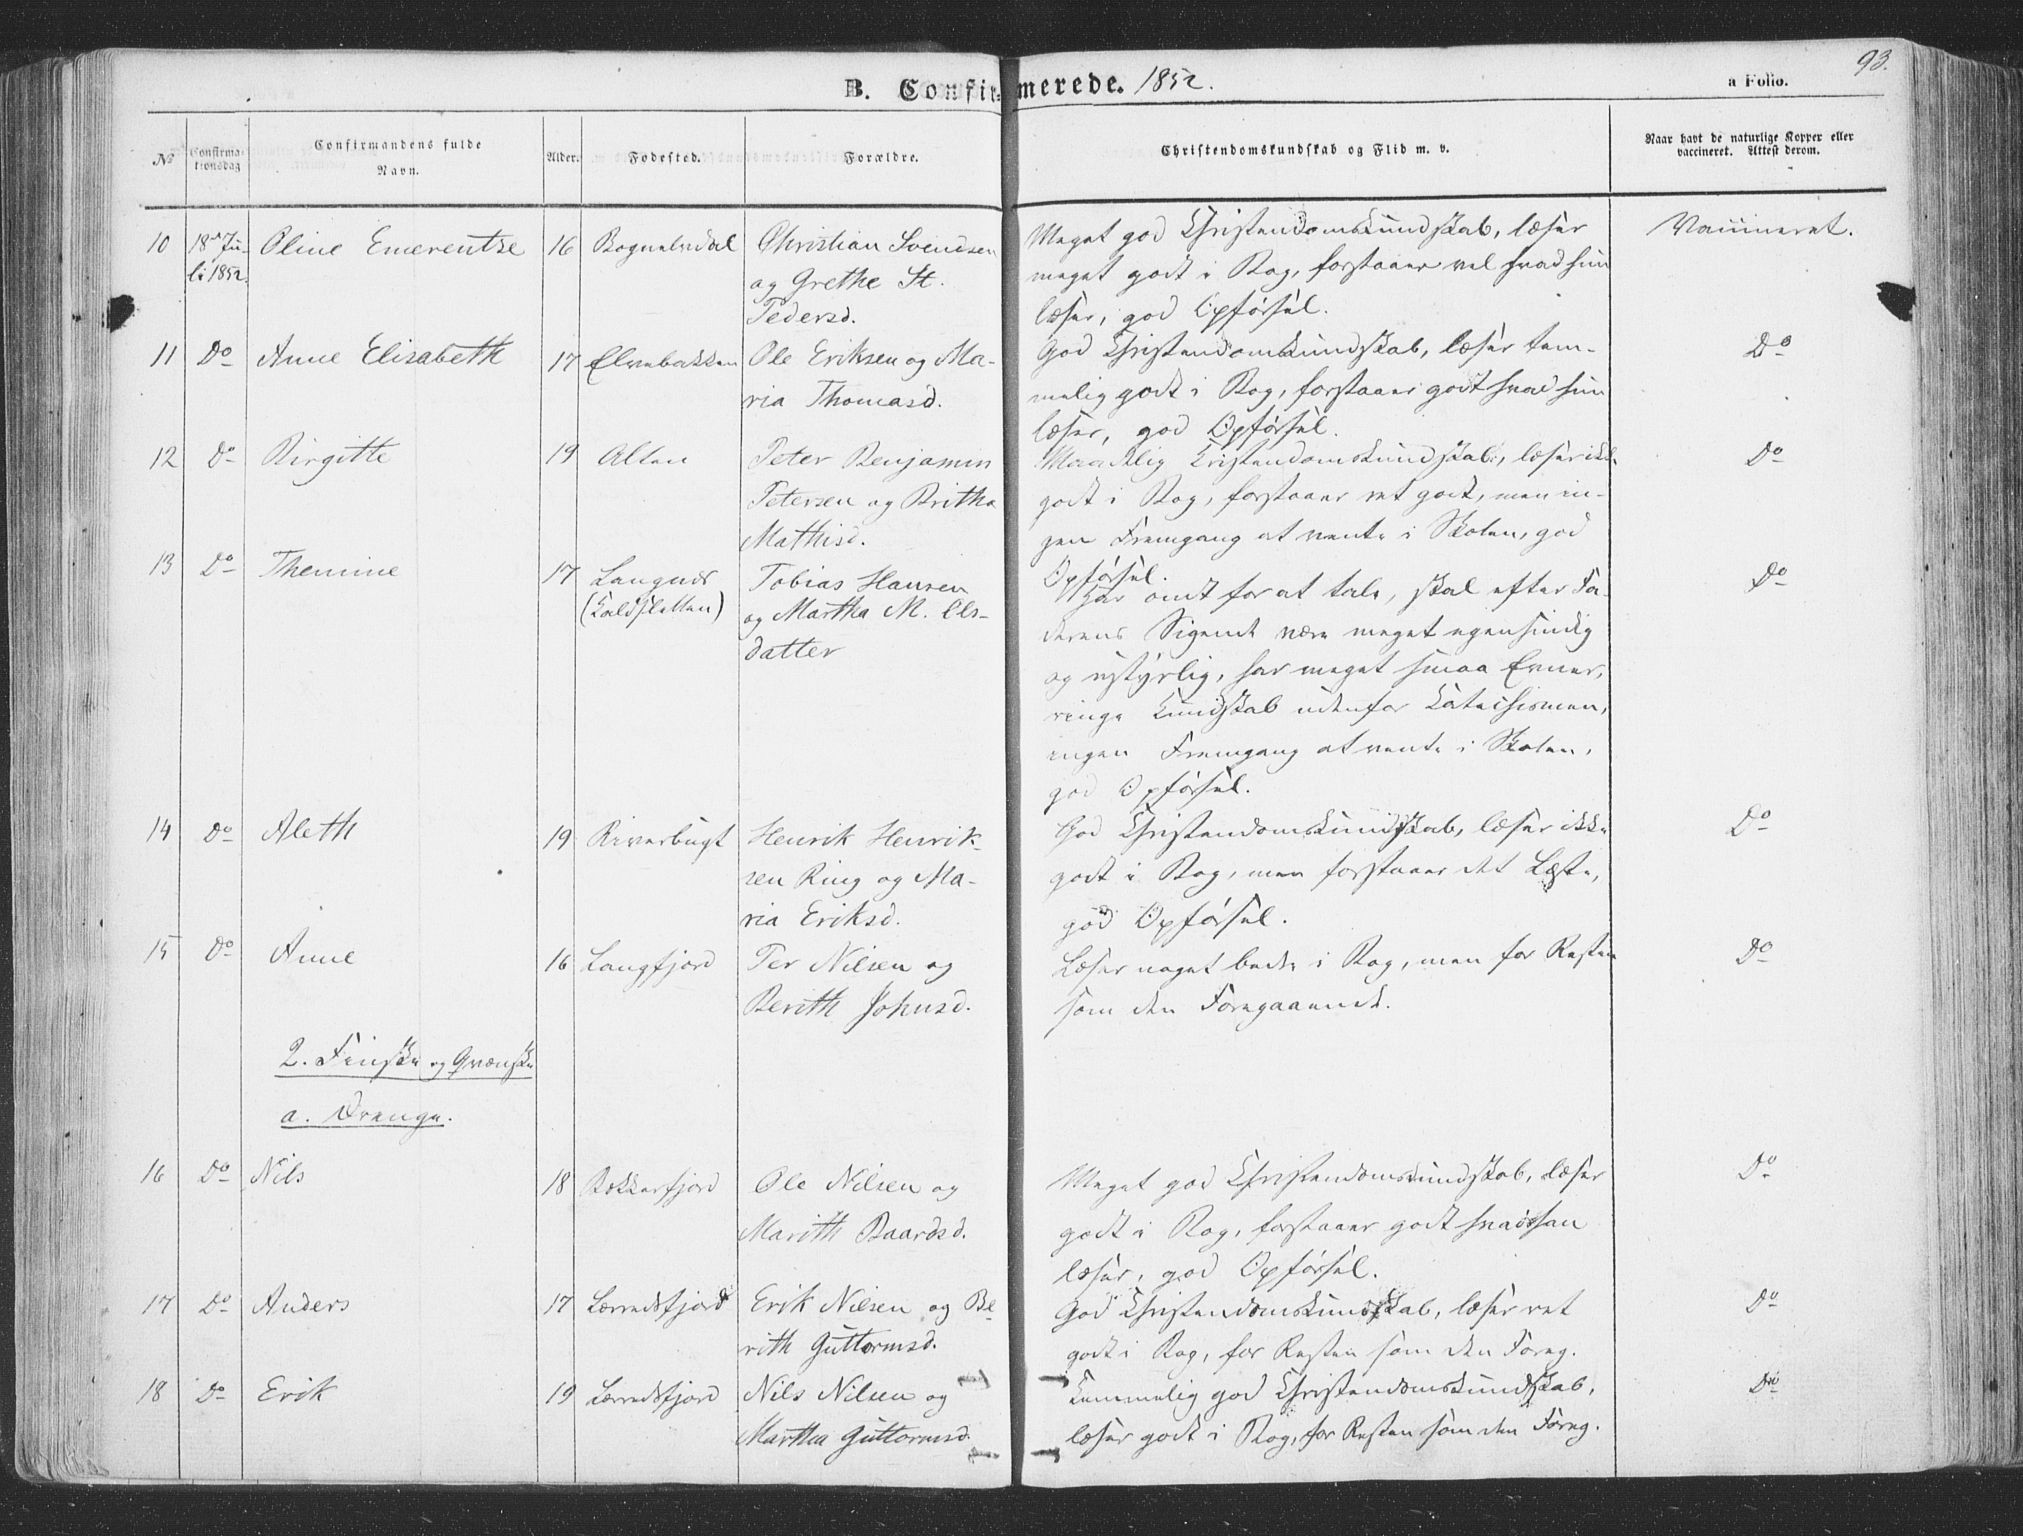 93.
B. Confirmerede. 1852.
a Folio.
No
Confirma-
tionsdag
Confirmandens fulde
Navn.
Alder.
Fødested.
Forældre.
Christendomskundskab og Flid m. v.
Naar havt de naturlige Kopper eller
vaccineret. Attest derom.
10 18de Ju- Oline Emerentze 16 Bognelvdal Christian Svendsen Meget god Christendomskundskab, læser Vaccineret.
li 1852. og Grethe St. meget godt i Bog, forstaaer vel hvad hun
Pedersd. læser, god Opførsel.
11 Do Anne Elisabeth 17 Elvebakken Ole Eriksen og Ma- God Christendomskundskab, læser tem- Do
ria Thomasd. melig godt i Bog, forstaaer godt hvad hun
læser, god Opførsel.
12 Do Birgitte 19 Alten Peter Benjamin Maadelig Kristendomskundskab, læser ikke Do
Petersen og Britha godt i Bog, forstaaer ret godt, men in-
Mathisd. gen Fremgang at vente i Skolen, god
Opførsel.
13 Do Themine 17 Langnæs Tobias Hansen Har ondt for at tale, skal efter Fa- Do
(Kaldsletten) og Martha M. Ols- derens Sigende være meget egensindig
datter og ustyrlig, har meget smaa Evner,
ringe Kundskab udenfor Katechismen,
ingen Fremgang at vente i Skolen,
god Opførsel.
14 Do Aleth 19 Riverbugt Henrik Henrik- God Christendomskundskab, læser ikke Do
sen Ring og Ma- godt i Bog, men forstaaer det Læste,
ria Eriksd. god Opførsel.
15 Do Anne 16 Langfjord Per Nilsen og Læser noget bedre i Bog, men for Resten Do
Berith Johnsd. som den Foregaaende.
2. Finske og Qvænske
a. Drenge.
16 Do Nils 18 Bekkerfjord Ole Nilsen og Meget god Christendomskundskab, læser Do
Marith Baardsd. godt i Bog, forstaaer godt hvad han
læser, god Opførsel.
17 Do Anders 17 Lærredsfjord Erik Nilsen og Be- God Christendomskundskab, læser ret Do
rith Guttormsd. godt i Bog, for Resten som den Foreg.
18 Do Erik 19 Lærredsfjord Nils Nilsen og Temmelig god Christendomskundskab, Do
Martha Guttormsd. læser godt i Bog, for Resten som den Foreg.